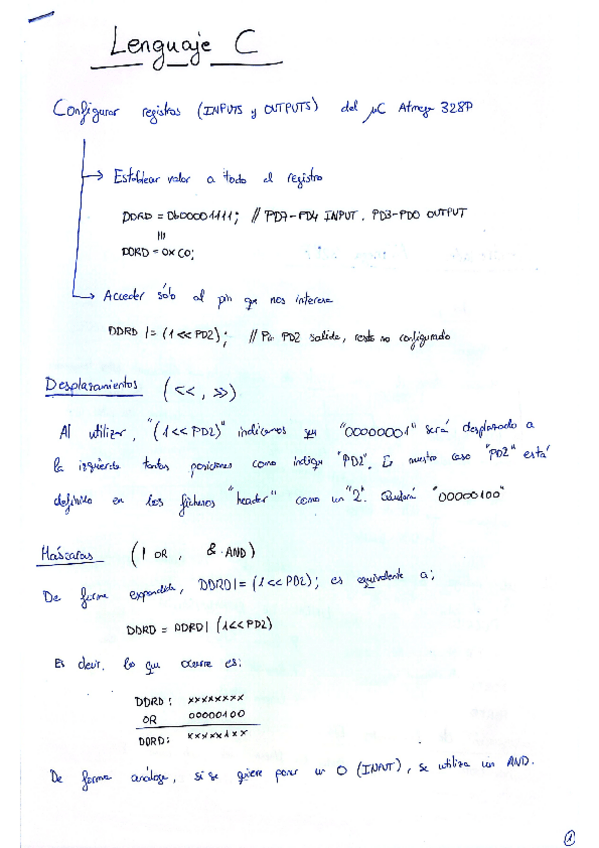 Lenguaje C
Configurar registros (INPUTS y OUTPUTS) del μC Atmega 328P
→ Establecer valor a todo el registro
DDRD = 0b00001111; // PD7-PD4 INPUT. PD3-PD0 OUTPUT
|||
DDRD = 0xC0;
→ Acceder sólo al pin que nos interese
DDRD |= (1<<PD2); // Pin PD2 salida, resto no configurado
Desplazamientos (<<, >>)
Al utilizar, "(1<<PD2)" indicamos que "00000001" será desplazado a
la izquierda tantas posiciones como indique "PD2". En nuestro caso "PD2" está
definido en los ficheros "header" como un "2". Quedará "00000100"
Máscaras (| OR, & AND)
De forma expandida, DDRD|= (1<<PD2); es equivalente a;
DDRD = DDRD| (1<<PD2)
Es decir, lo que ocurre es:
DDRD: xxxxxxxx
OR 00000100
DDRD: xxxxx1xx
De forma análoga, si se quiere poner un 0 (INPUT), se utiliza un AND.
1